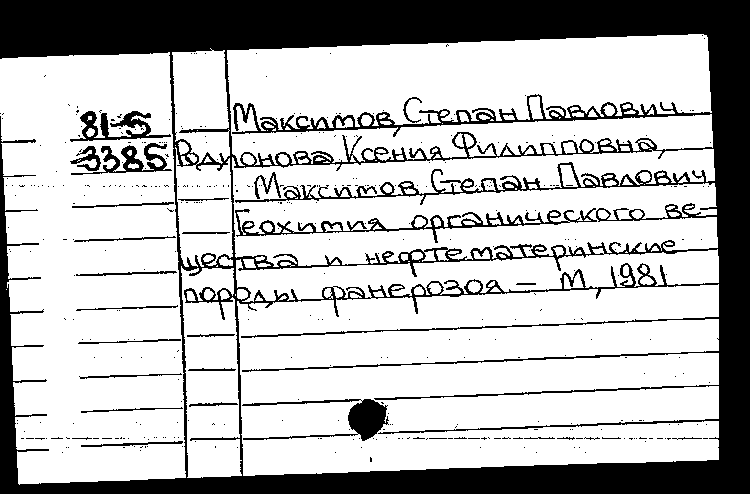 81-5 Максимов, Степан Павлович
3385 Родионова, Ксения Филипповна,
Максимов, Степан Павлович.
Геохимия органического ве-
щества и нефтематеринские
породы фанерозоя – М., 1981